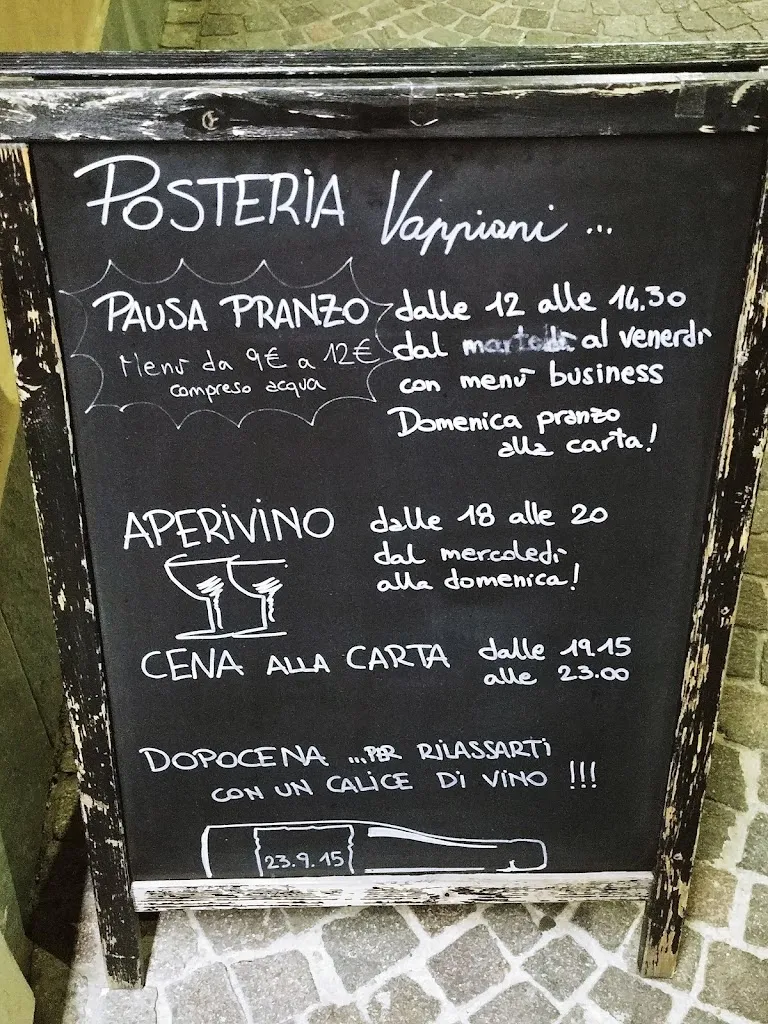 POSTERIA Vappiani ...
PAUSA PRANZO
Menù da 9€ a 12€
compreso acqua
dalle 12 alle 14.30
dal martedì al venerdì
con menù business
Domenica pranzo
alla carta!
APERIVINO
dalle 18 alle 20
dal mercoledì
alla domenica!
CENA ALLA CARTA
dalle 19.15
alle 23.00
DOPOCENA ...PER RILASSARTI
CON UN CALICE DI VINO !!!
23.9.15